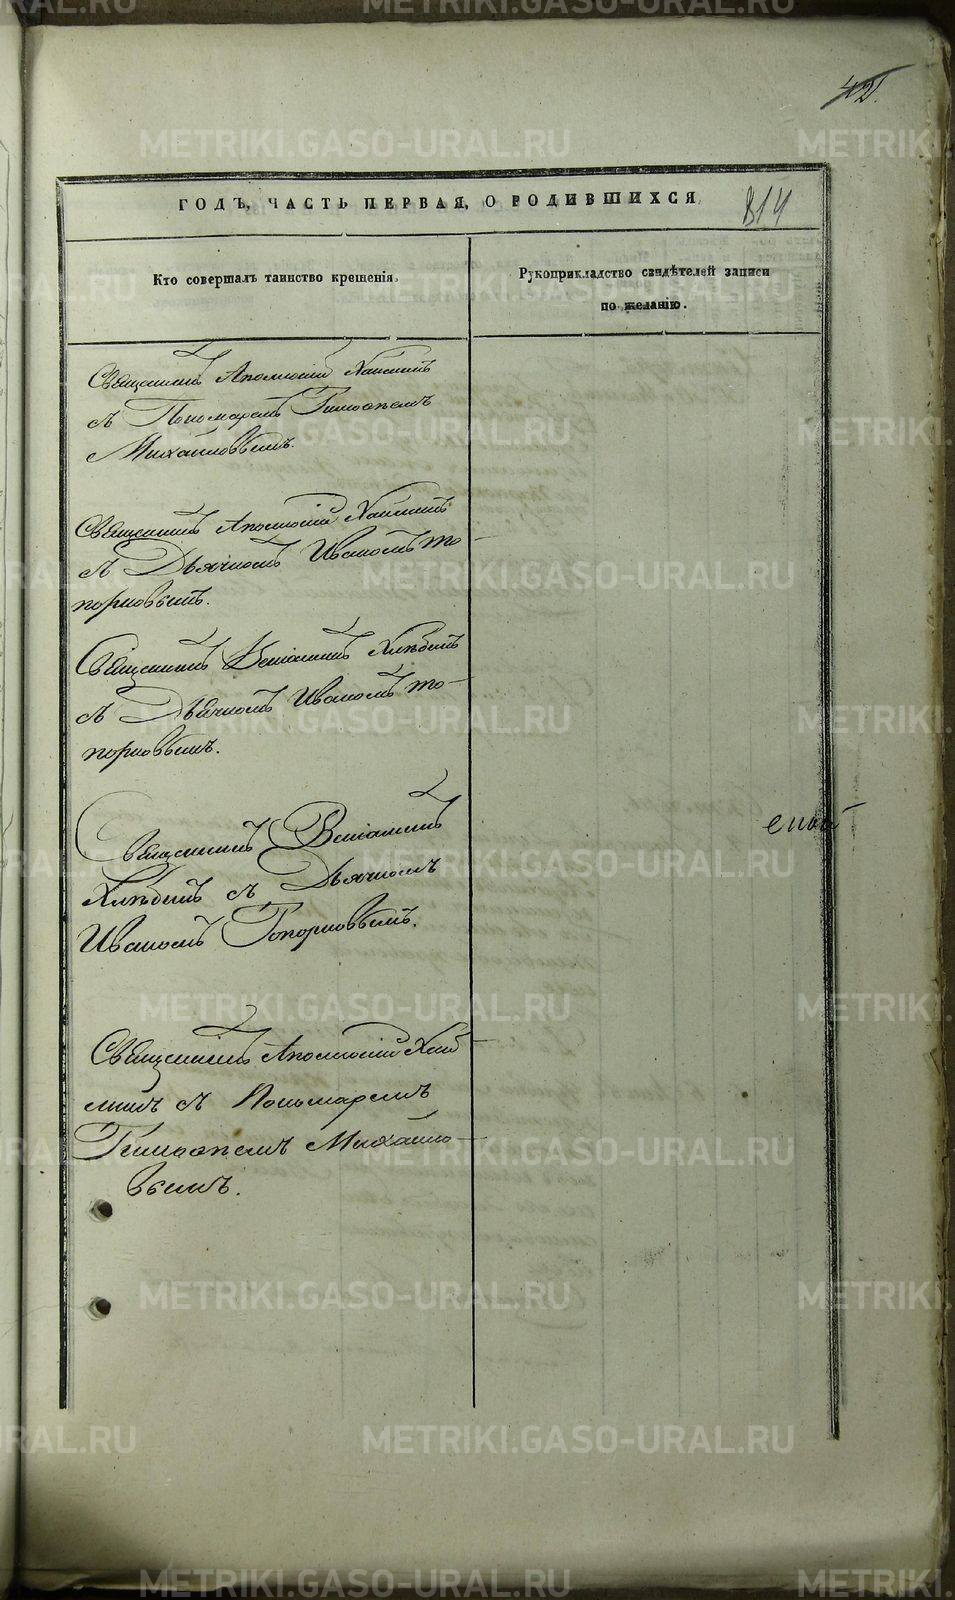 42.
ГОДЪ, ЧАСТЬ ПЕРВАЯ, О РОДИВШИХСЯ
814
Кто совершалъ таинство крещенія.
Рукоприкладство свидѣтелей записи
по желанію.
Священникъ Аполлосій
съ Пономаремъ Тимофеемъ
Михайловымъ.
Священникъ Аполлосій
съ Дьячкомъ Иваномъ То-
порковымъ.
Священникъ Веніаминъ Хлѣбинъ
съ Дьячкомъ Иваномъ То-
порковымъ.
Священникъ Веніаминъ
Хлѣбинъ съ Дьячкомъ
Иваномъ Топорковымъ.
Священникъ Аполлосій
съ Пономаремъ
Тимофеемъ Михайло-
вымъ.
METRIKI.GASO-URAL.RU